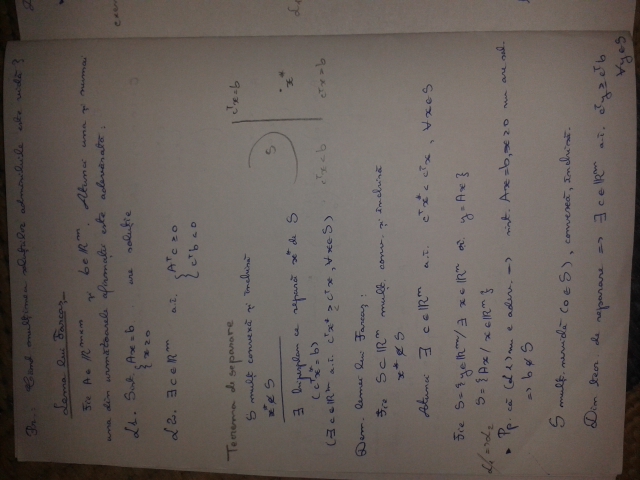 Când mulțimea soluțiilor admisibile este vidă?
Lema lui Farkas
Fie A∈ℝᵐˣⁿ și b∈ℝᵐ. Atunci una și numai
una din următoarele afirmații este adevărată:
L1. Sist. {Ax=b are soluție
x≥0
L2. ∃ c∈ℝᵐ a.î. {Aᵀc≥0
cᵀb<0
Teorema de separare
S mult convexă și închisă
x*∉S
∃ hiperplan ce separă x* de S
(cᵀx=b)
(∃ c∈ℝᵐ a.î. cᵀx*<cᵀx, ∀x∈S)
S
x*
cᵀx=b
cᵀx<b
cᵀx>b
Dem. lemei lui Farkas:
Fie S⊂ℝᵐ mulț. conv. și închisă
x*∉S
Atunci ∃ c∈ℝᵐ a.î. cᵀx*<cᵀx, ∀x∈S
Fie S={y∈ℝᵐ/∃ x∈ℝⁿ aî. y=Ax}
S={Ax/x∈ℝⁿ}
• Pp. că (L1) nu e adev. ⇒ sist. Ax=b, x≥0 nu are sol.
⇒ b∉S
S mult. nevidă (0∈S), convexă, închisă.
Din teor. de separare ⇒ ∃ c∈ℝᵐ a.î. cᵀy>cᵀb
∀y∈S